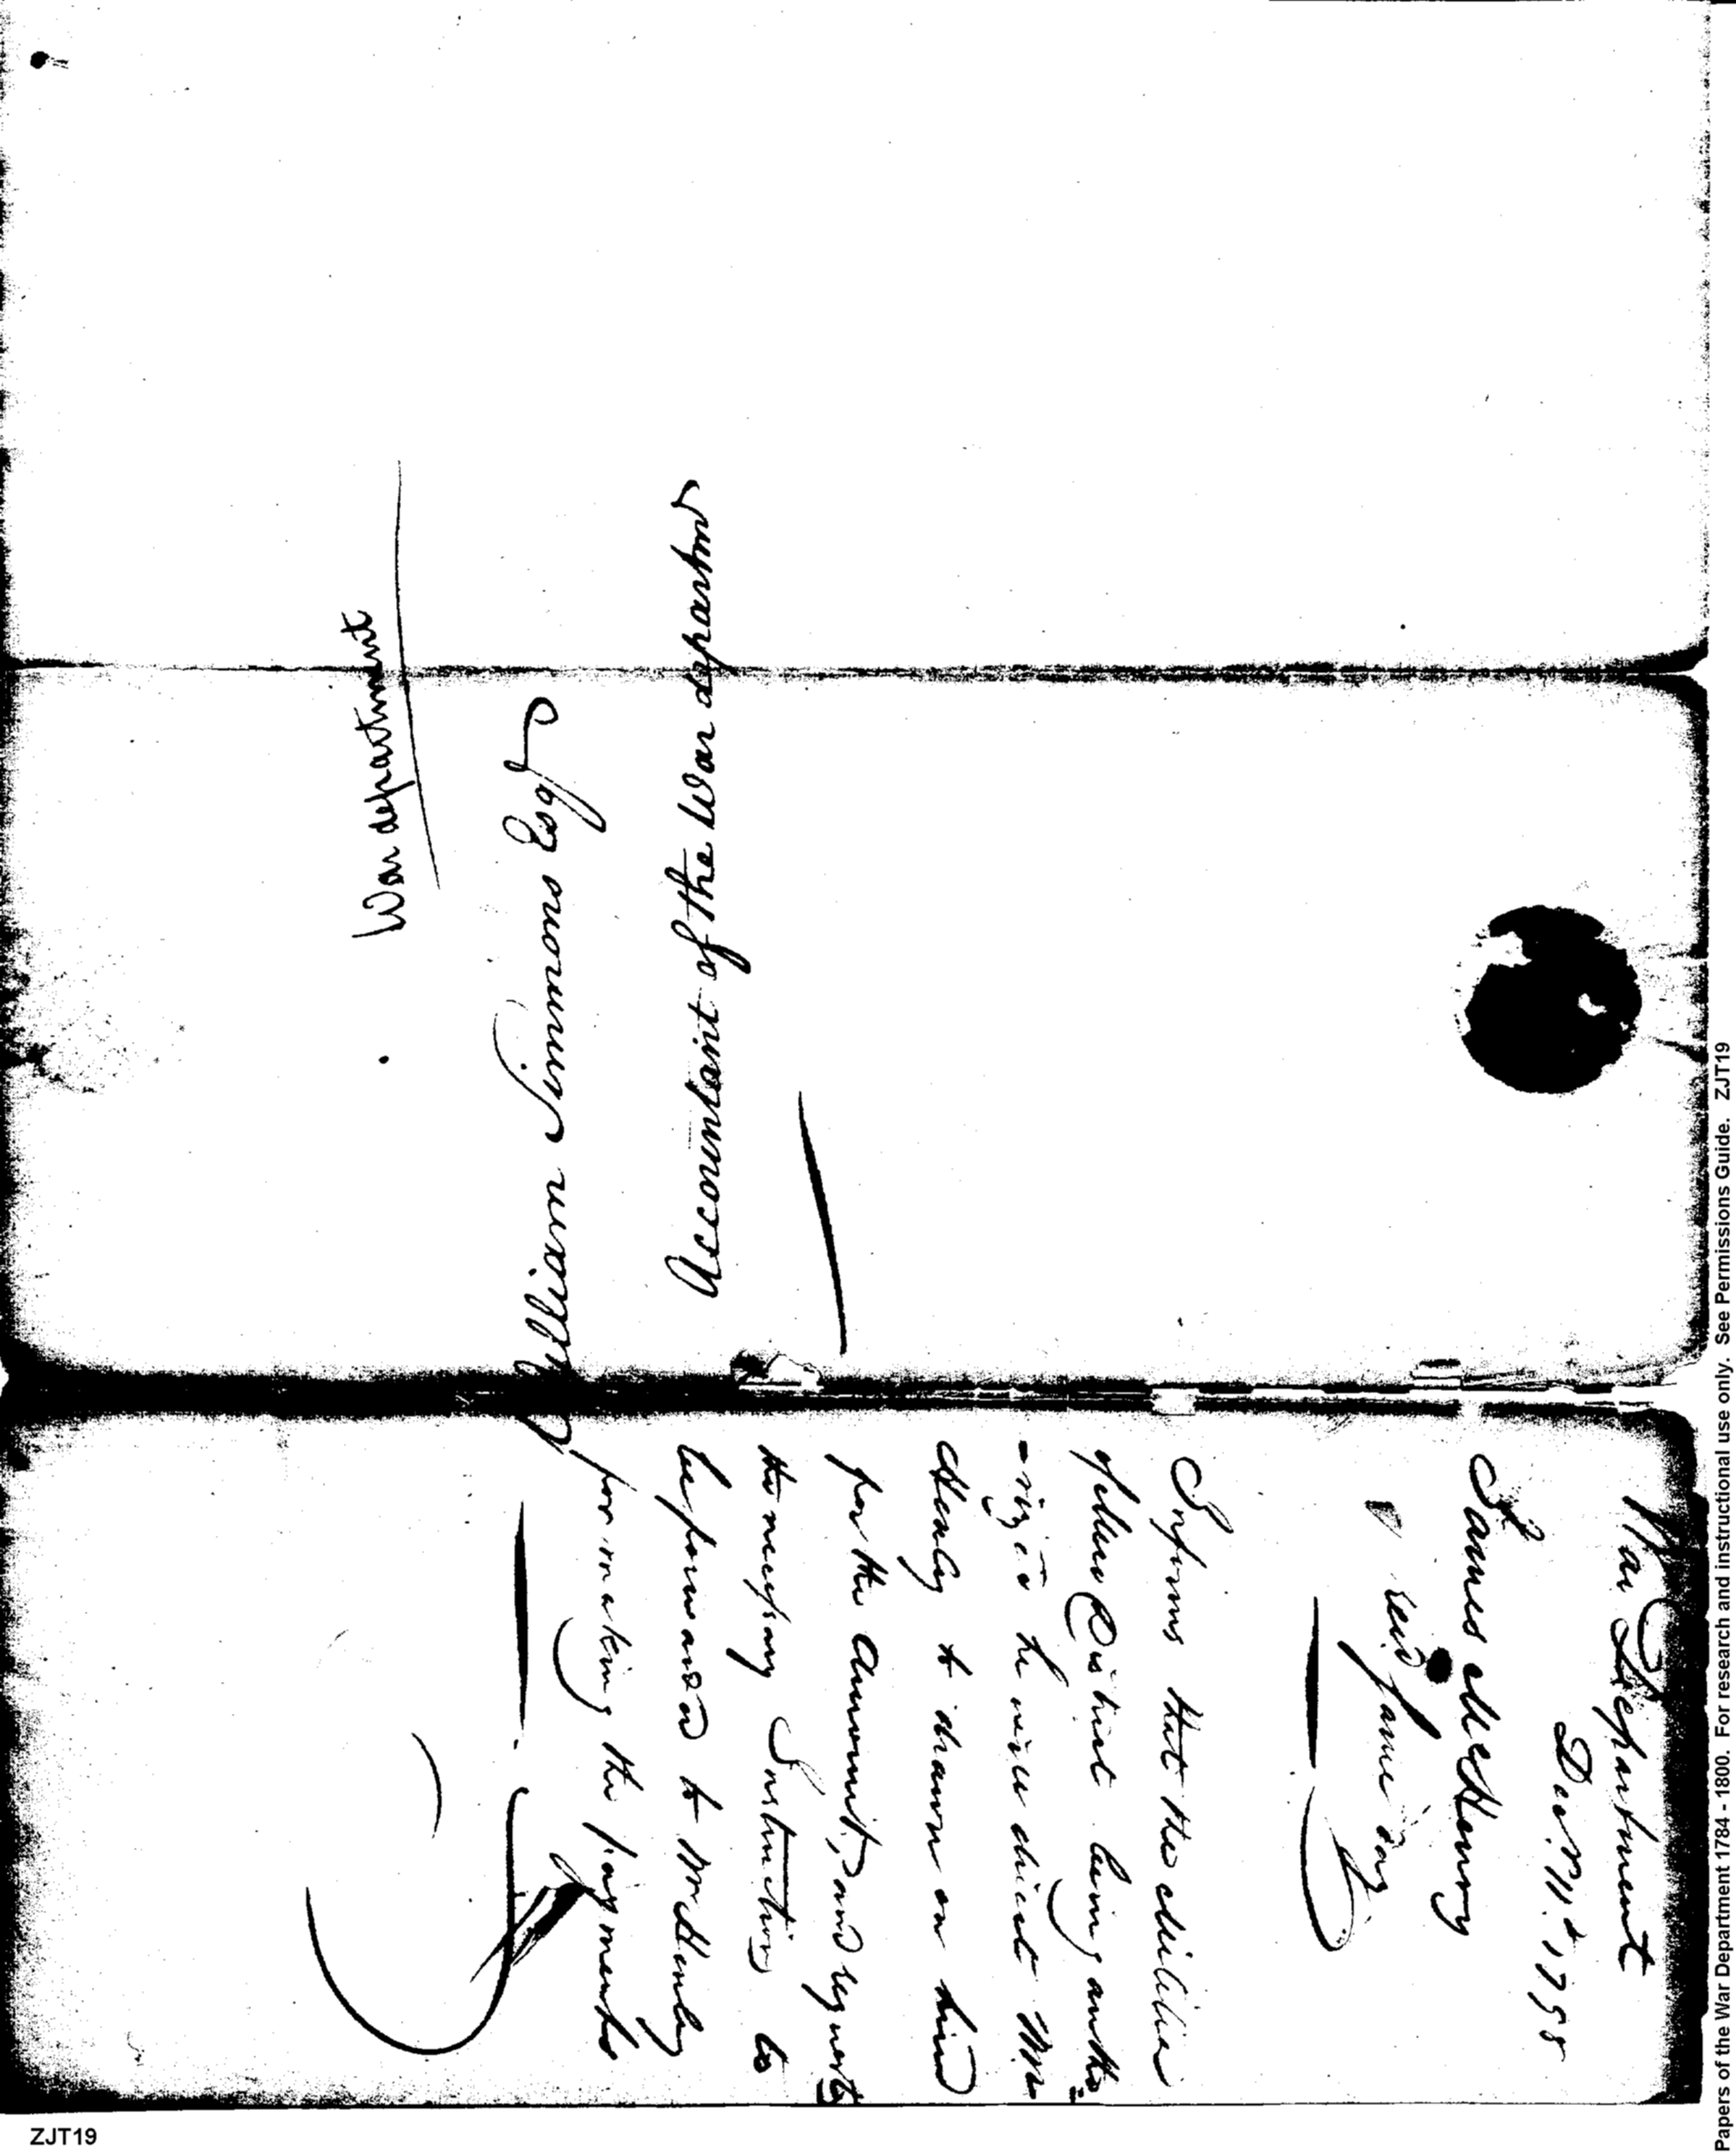 War department
William Simmons Esqr
Accountant of the War department
War Department
Decr 11th 1798
James McHenry
recd same day
Informs that the Militia
of Mero District being autho
-rized he will direct Mr
Henley to drawn on him
for the Amount, and requests
the necessary Instructions to
be forwarded to Mr Henley
for making the payments
ZJT19
Papers of the War Department 1784 - 1800. For research and instructional use only. See Permissions Guide. ZJT19